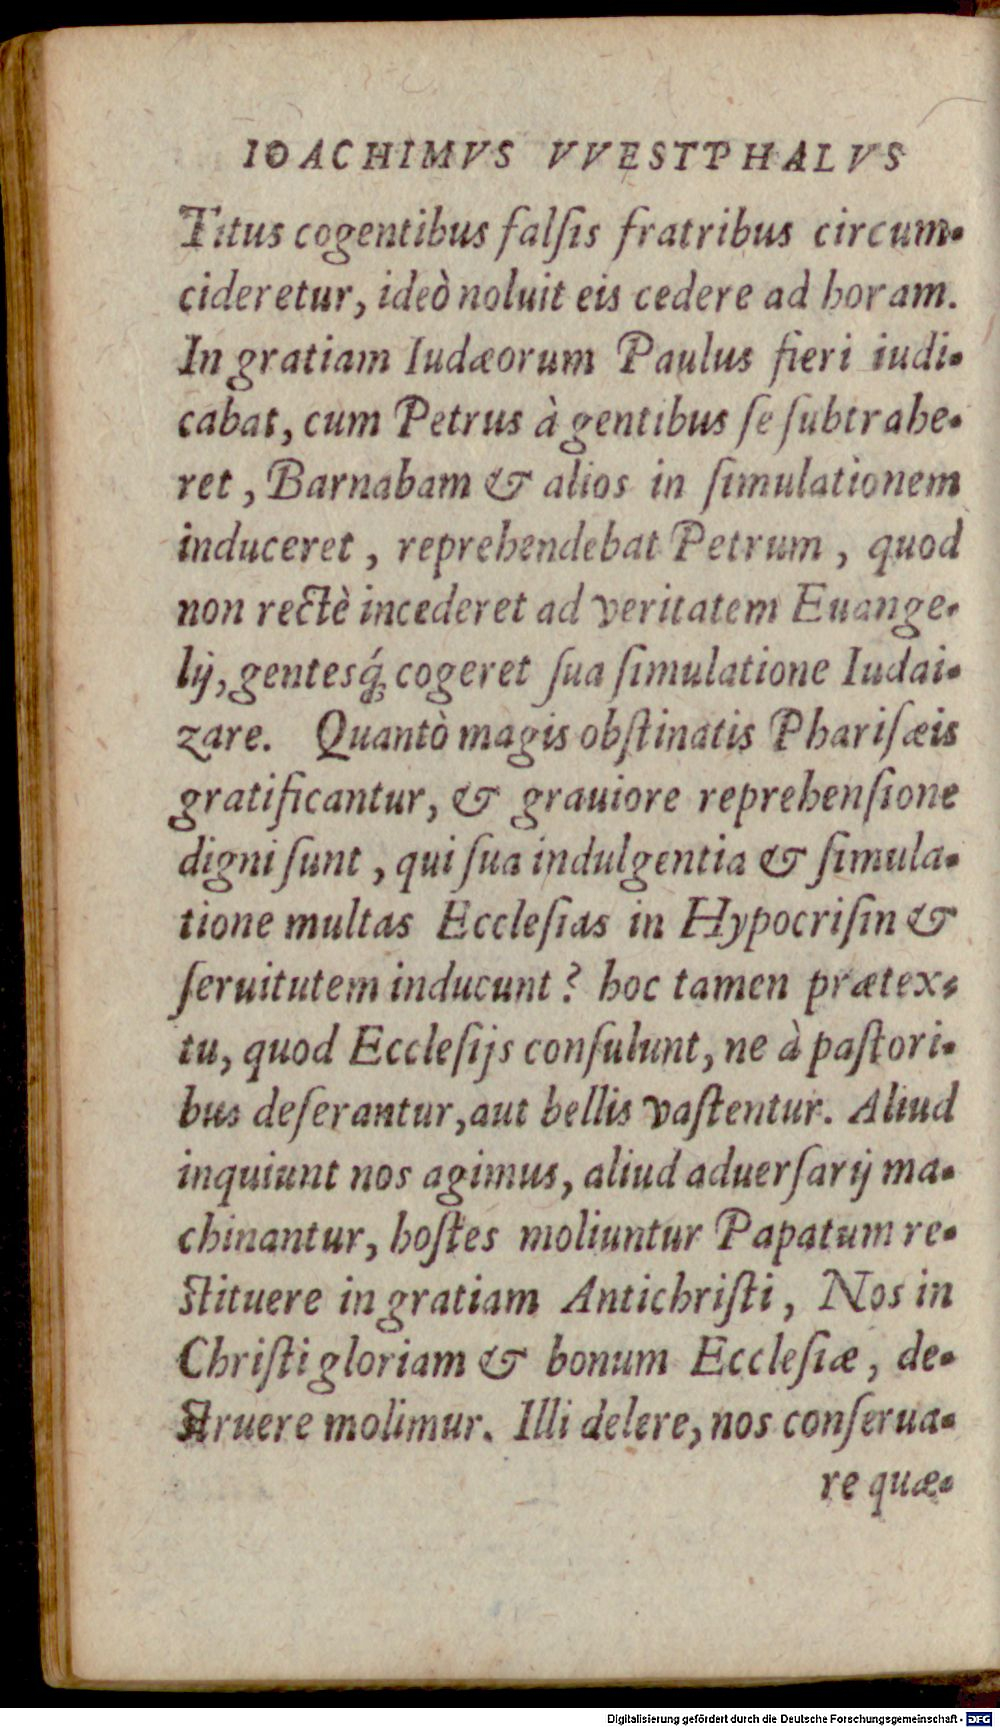 IOACHIMVS VVESTPHALVS
Titus cogentibus falſis fratribus circum-
cideretur, ideò noluit eis cedere ad horam.
In gratiam Iudæorum Paulus fieri iudi-
cabat, cum Petrus à gentibus ſe ſubtrahe-
ret, Barnabam & alios in ſimulationem
induceret, reprehendebat Petrum, quod
non rectè incederet ad veritatem Euange-
lij, gentesq́; cogeret ſua ſimulatione Iudai-
zare. Quantò magis obſtinatis Phariſæis
gratificantur, & grauiore reprehenſione
digni ſunt, qui ſua indulgentia & ſimula-
tione multas Eccleſias in Hypocriſin &
ſeruitutem inducunt? hoc tamen prætex-
tu, quod Eccleſijs conſulunt, ne à paſtori-
bus deſerantur, aut bellis vaſtentur. Aliud
inquiunt nos agimus, aliud aduerſarij ma-
chinantur, hoſtes moliuntur Papatum re-
ſtituere in gratiam Antichriſti, Nos in
Chriſti gloriam & bonum Eccleſiæ, de-
ſtruere molimur. Illi delere, nos conſerua-
re quæ-
Digitalisierung gefördert durch die Deutsche Forschungsgemeinschaft - DFG